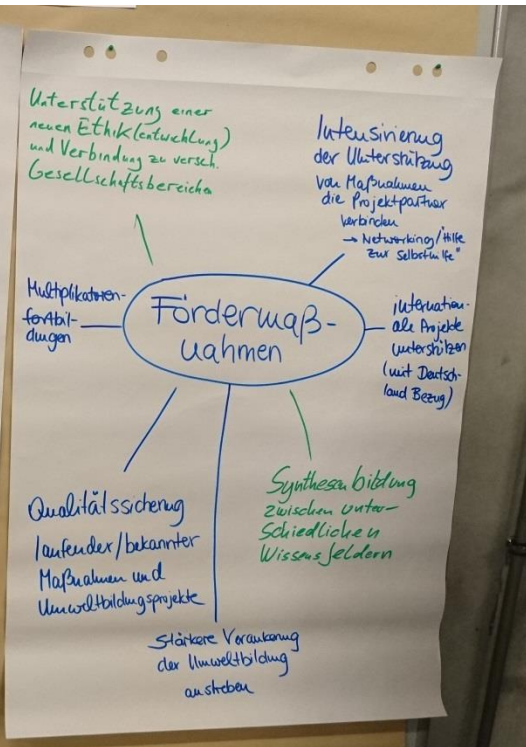 Unterstützung einer
neuen Ethik(entwicklung)
und Verbindung zu versch.
Gesellschaftsbereichen
Intensivierung
der Unterstützung
von Maßnahmen
die Projektpartner
verbinden
→ Networking/"Hilfe
zur Selbsthilfe"
Multiplikatoren-
fortbil-
dungen
Fördermaß-
nahmen
internation-
ale Projekte
unterstützen
(mit Deutsch-
land Bezug)
Qualitätssicherung
laufender/bekannter
Maßnahmen und
Umweltbildungsprojekte
Synthesenbildung
zwischen unter-
schiedlichen
Wissensfeldern
Stärkere Verankerung
der Umweltbildung
anstreben